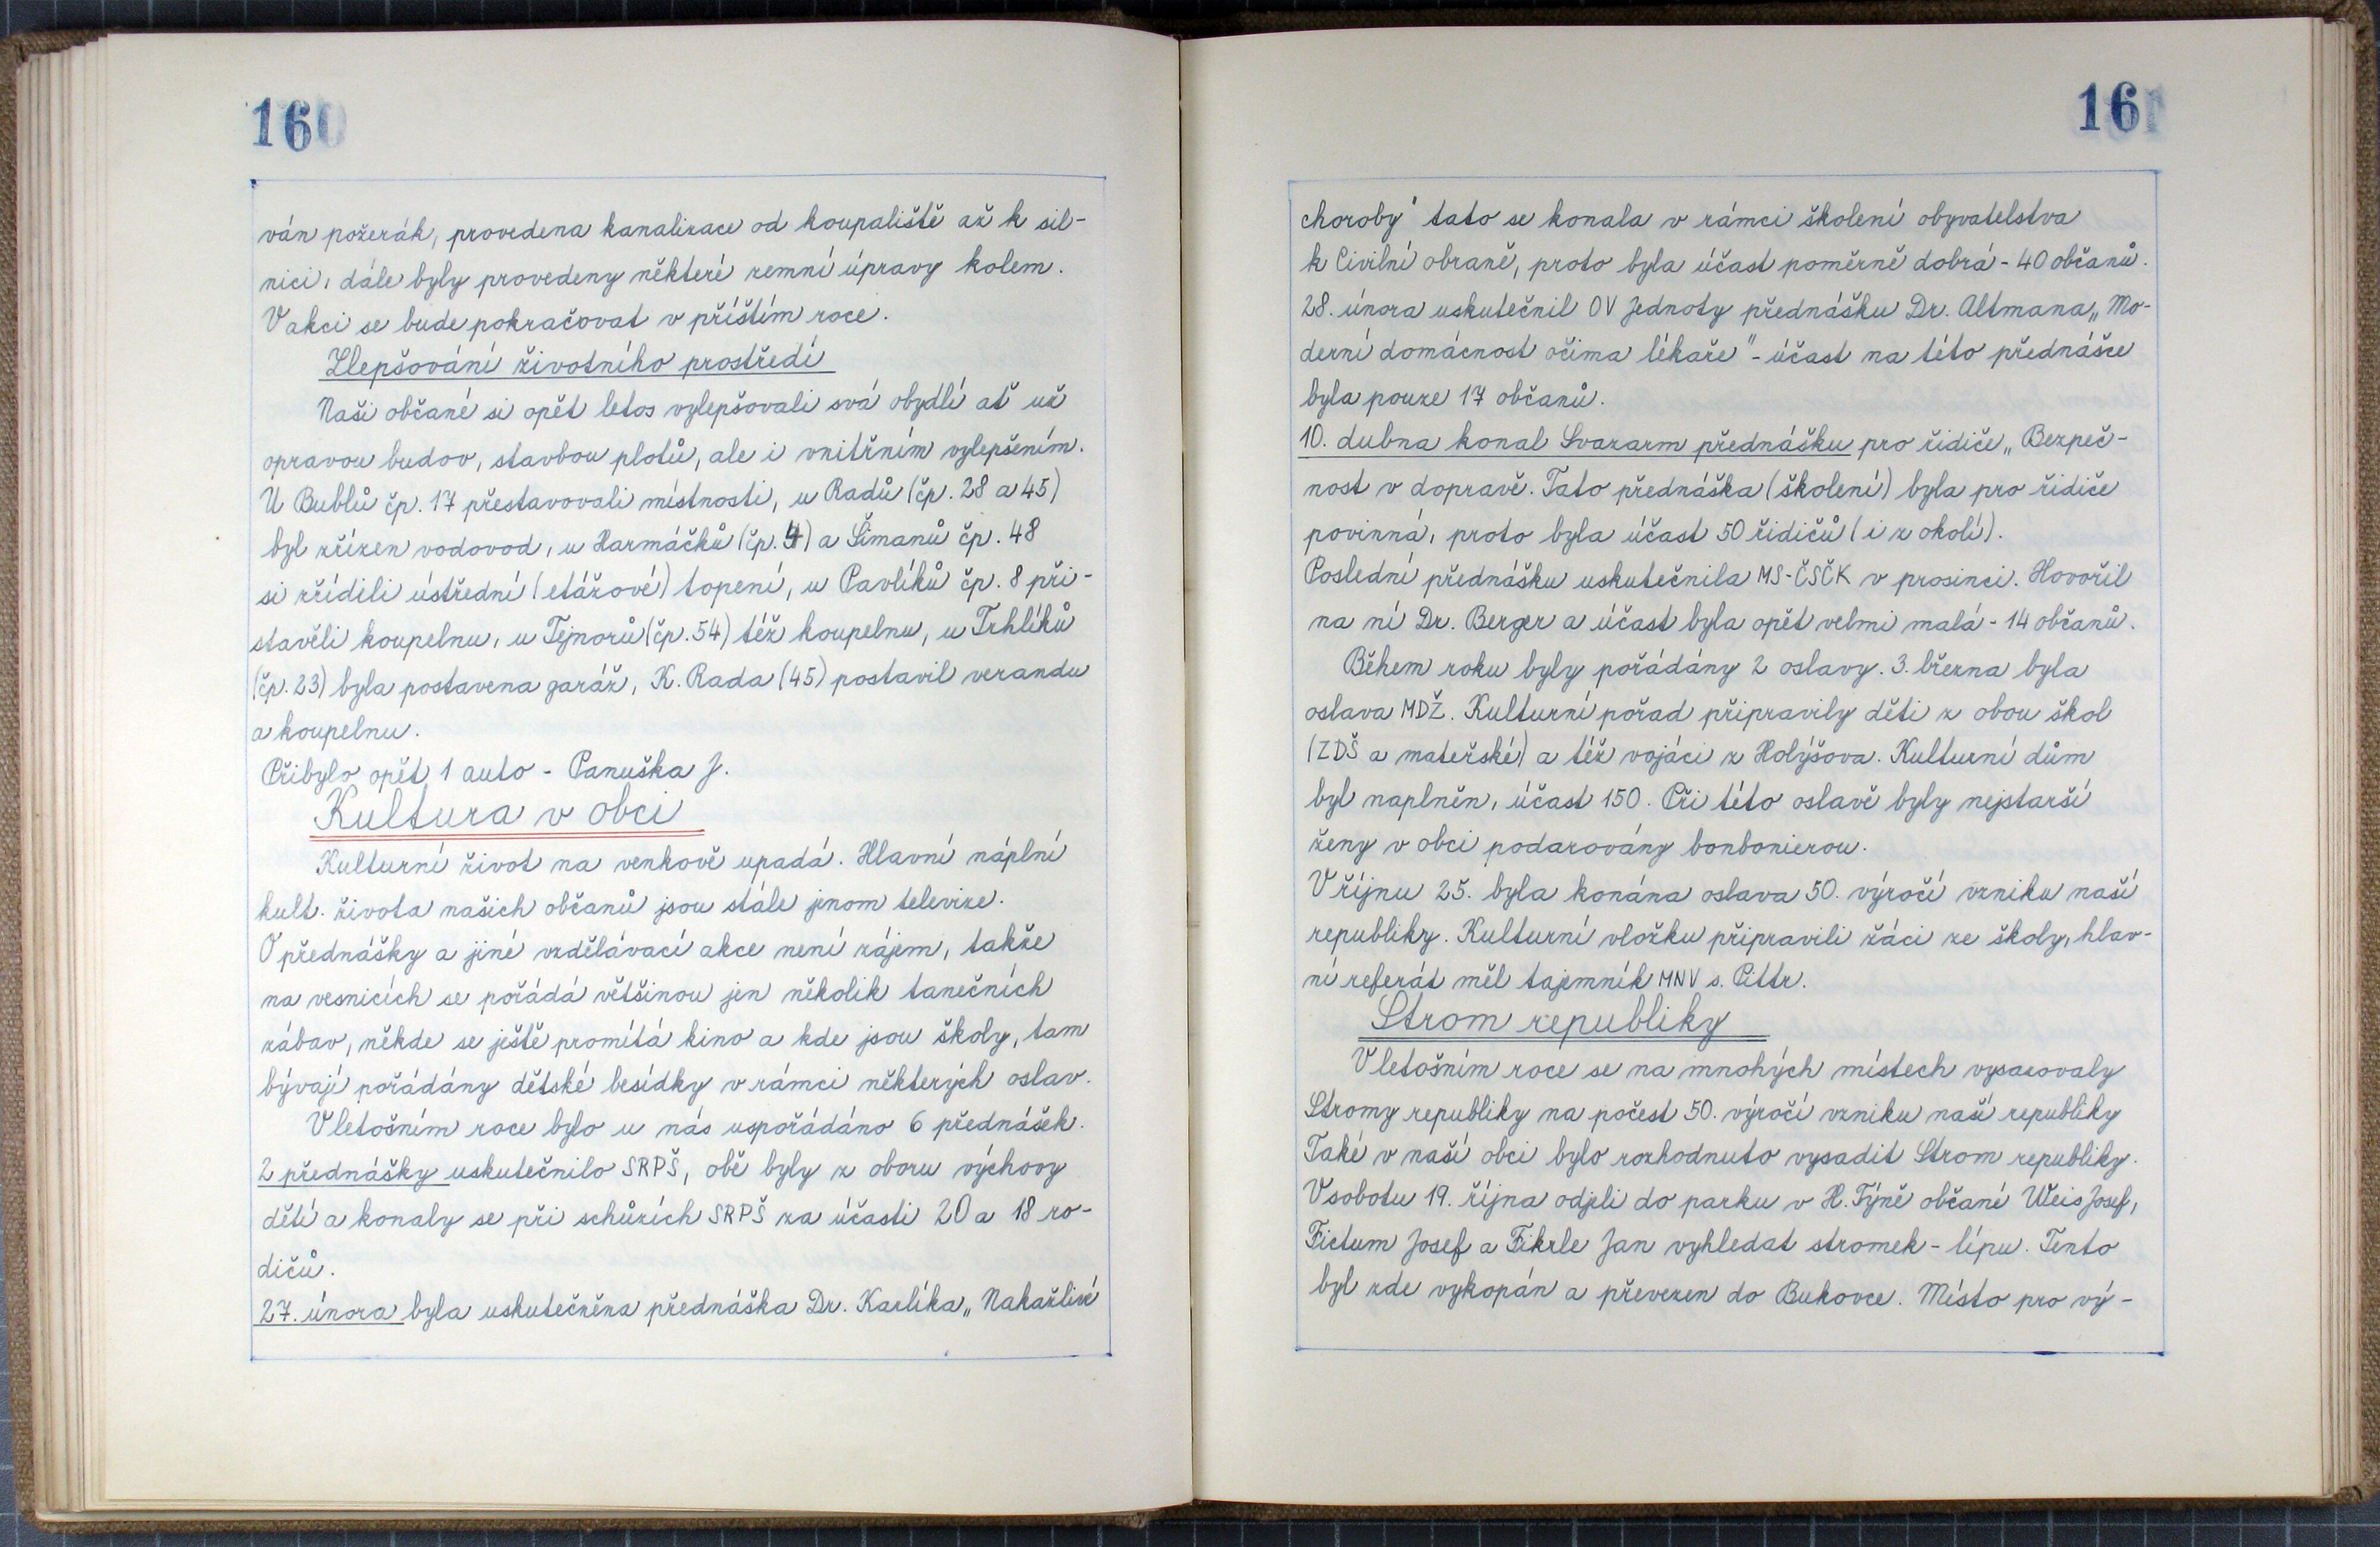 160
ván požerák, provedena kanalizace od koupaliště až k sil-
nici, dále byly provedeny některé zemní úpravy kolem.
V akci se bude pokračovat v příštím roce.
Zlepšování životního prostředí
Naši občané si opět letos vylepšovali svá obydlí ať už
opravou budov, stavbou plotů, ale i vnitřním vylepšením.
U Bublů čp. 17 přestavovali místnosti, u Radů (čp. 28 a 45)
byl zřízen vodovod, u Harmáčků (čp. 4) a Šimanů čp. 48
si zřídili ústřední (etážové) topení, u Pavlíků čp. 8 při-
stavěli koupelnu, u Tejnorů (čp. 54) též koupelnu, u Trhlíků
(čp. 23) byla postavena garáž, K. Rada (45) postavil verandu
a koupelnu.
Přibylo opět 1 auto - Panuška J.
Kultura v obci
Kulturní život na venkově upadá. Hlavní náplní
kult. života našich občanů jsou stále jenom televize.
O přednášky a jiné vzdělávací akce není zájem, takže
na vesnicích se pořádá většinou jen několik tanečních
zábav, někde se ještě promítá kino a kde jsou školy, tam
bývají pořádány dětské besídky v rámci některých oslav.
V letošním roce bylo u nás uspořádáno 6 přednášek.
2 přednášky uskutečnilo SRPŠ, obě byly z oboru výchovy
dětí a konaly se při schůzích SRPŠ za účasti 20 a 18 ro-
dičů.
27. února byla uskutečněna přednáška Dr. Karlíka „Nakažlivé
161
choroby" tato se konala v rámci školení obyvatelstva
k Civilní obraně, proto byla účast poměrně dobrá - 40 občanů.
28. února uskutečnil OV Jednoty přednášku Dr. Altmana „Mo-
derní domácnost očima lékaře" - účast na této přednášce
byla pouze 17 občanů.
10. dubna konal Svazarm přednášku pro řidiče „Bezpeč-
nost v dopravě. Tato přednáška (školení) byla pro řidiče
povinná, proto byla účast 50 řidičů (i z okolí).
Poslední přednášku uskutečnila MS-ČSČK v prosinci. Hovořil
na ní Dr. Berger a účast byla opět velmi malá - 14 občanů.
Během roku byly pořádány 2 oslavy. 3. března byla
oslava MDŽ. Kulturní pořad připravily děti z obou škol
(ZDŠ a mateřské) a též vojáci z Holýšova. Kulturní dům
byl naplněn, účast 150. Při této oslavě byly nejstarší
ženy v obci podarovány bonbonierou.
V říjnu 25. byla konána oslava 50. výročí vzniku naší
republiky. Kulturní vložku připravili žáci ze školy, hlav-
ní referát měl tajemník MNV s. Pittr.
Strom republiky
V letošním roce se na mnohých místech vysazovaly
Stromy republiky na počest 50. výročí vzniku naší republiky
Také v naší obci bylo rozhodnuto vysadit Strom republiky.
V sobotu 19. října odjeli do parku v H. Týně občané Weis Josef,
Fictum Josef a Fikrle Jan vyhledat stromek - lípu. Tento
byl zde vykopán a převezen do Bukovce. Místo pro vý-